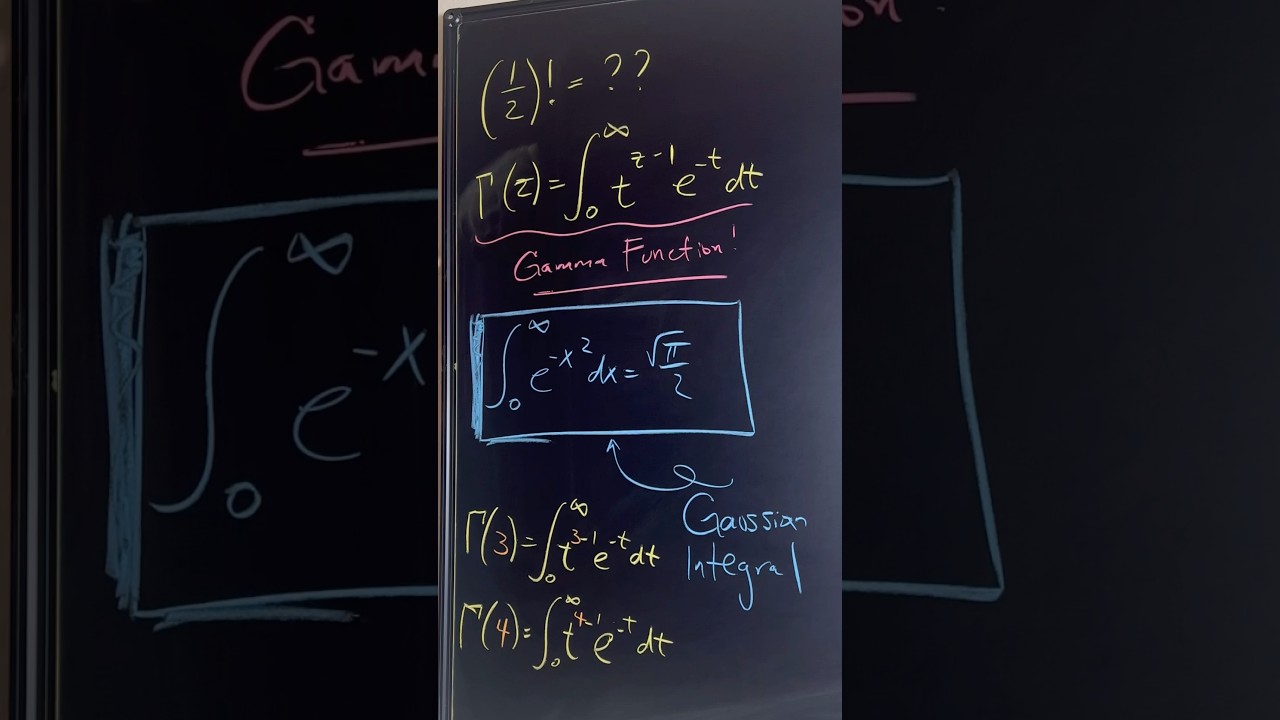 (1/2)! = ??
Γ(z) = ∫₀^∞ t^{z-1} e^{-t} dt
Gamma Function!
∫₀^∞ e^{-x²} dx = √π/2
Gaussian
Integral
Γ(3) = ∫₀^∞ t^{3-1} e^{-t} dt
Γ(4) = ∫₀^∞ t^{4-1} e^{-t} dt